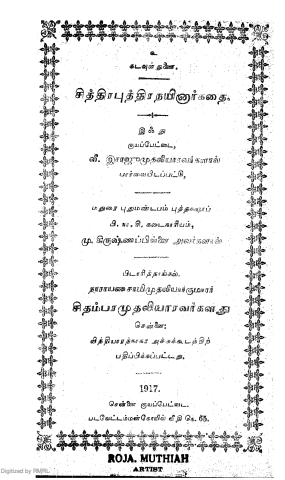 உ
கடவுள் துணை.
சித்திரபுத்திரநயினார்கதை.
இஃது
குயப்பேட்டை,
வீ. இராஜுமுதலியாரவர்களால்
பார்வையிடப்பட்டு,
மதுரை புதுமண்டபம் புத்தகஷாப்
பி. நா. சி. கடைகாரியம்,
மு. கிருஷ்ணப்பிள்ளை அவர்களால்
பிடாரித்தாங்கல்,
நாராயணசாமிமுதலியார்குமாரர்
சிதம்பரமுதலியாரவர்களது
சென்னை:
வித்தியாரத்நாகர அச்சுக்கூடத்திற்
பதிப்பிக்கப்பட்டது.
1917.
சென்னை குயப்பேட்டை.
படவேட்டம்மன்கோயில் வீதி நெ. 65.
ROJA. MUTHIAH
ARTIST
Digitized by RMRL